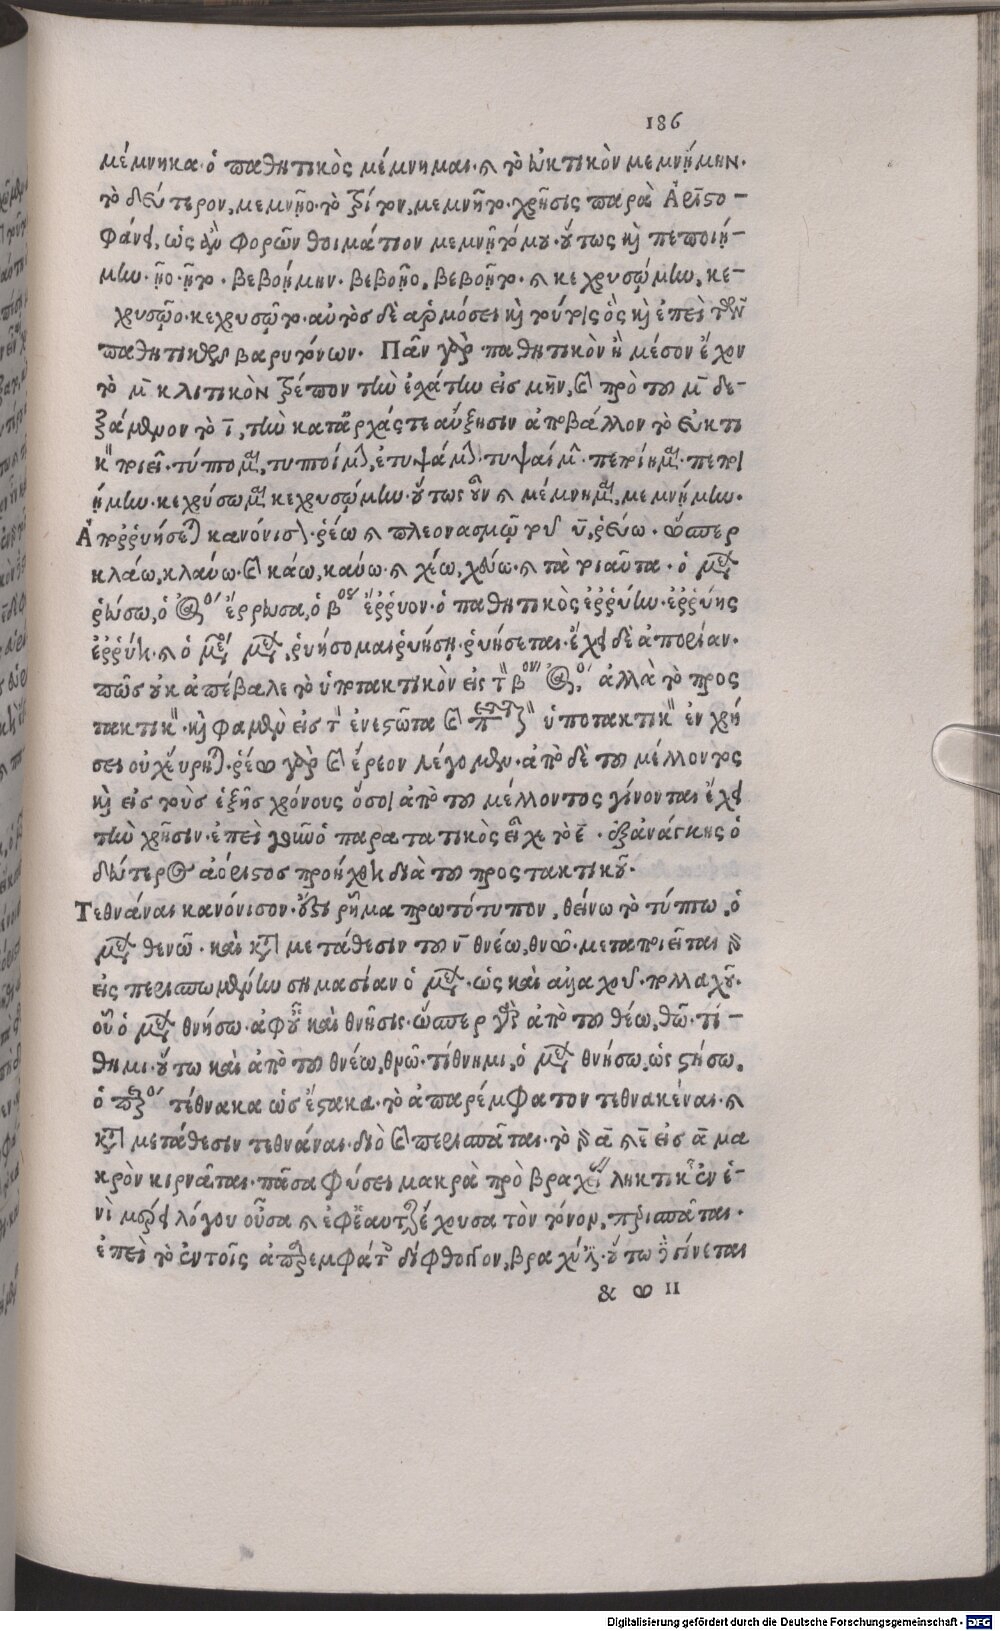 186
μέμνηκα· ὁ παθητικὸς μέμνημαι· καὶ τὸ εὐκτικὸν μεμνῄμην·
τὸ δεύτερον, μεμνῇο· τὸ τρίτον, μεμνῇτο· χρῆσις παρὰ Ἀριστο-
φάνει, ὡς ἂν φορῶν θοιμάτιον μεμνῇτό μου· οὕτως καὶ πεποιή-
μην· ῇο· ῇτο· βεβοῄμην· βεβοῇο, βεβοῇτο· καὶ κεχρυσῴμην, κε-
χρυσῷο· κεχρυσῷτο· αὐτὸς δὲ ἁρμόσει καὶ τούτοις ὃς καὶ ἐπεὶ τῶν
παθητικῶν βαρυτόνων· Πᾶν γὰρ παθητικὸν ἢ μέσον ἔχον
τὸ μ̅ κλιτικὸν τρέπον τὴν ἐχάτην εἰς μην, καὶ πρὸ τοῦ μ̅ δε-
ξάμενον τὸ ι̅, τὴν κατ' ἀρχάς τε αὔξησιν ἀποβάλλον τὸ εὐκτι
κὸν ποιεῖ· τύπομαι, τυποίμην, ἐτυψάμην· τυψαίμην· πεποίημαι· πεποι
ῄμην· κεχρύσωμαι κεχρυσῴμην· οὕτως οὖν καὶ μέμνημαι, μεμνῄμην·
Ἀπορρυήσεται κανόνισον· ῥέω καὶ πλεονασμῷ τοῦ υ̅, ῥεύω· ὥσπερ
κλάω, κλαύω· καὶ κάω, καύω· καὶ χέω, χεύω· καὶ τὰ τοιαῦτα· ὁ μέλλων
ῥεύσω, ὁ ἀόριστος ἔρρευσα, ὁ βος ἔρρυον· ὁ παθητικὸς ἐρρύην· ἐρρύης
ἐρρύη· καὶ ὁ μέσος μέλλων, ῥυήσομαι ῥυήσῃ· ῥυήσεται· ἔχει δὲ ἀπορίαν·
πῶς οὐκ ἀπέβαλε τὸ ὑποτακτικὸν εἰς τὸν βον ἀόριστον· ἀλλὰ τὸ προς
τακτικὸν· καὶ φαμὲν εἰς τὸν ἐνεστῶτα καὶ ὑποτακτικὸν ἐν χρή
σει οὐχ εὕρηται· ῥέω γὰρ καὶ ἔρεον λέγομεν· ἀπὸ δὲ τοῦ μέλλοντος
καὶ εἰς τοὺς ἑξῆς χρόνους ὅσοι ἀπὸ τοῦ μέλλοντος γίνονται ἔχει
τὴν χρῆσιν· ἐπεὶ γοῦν ὁ παρατατικὸς εἶχε τὸ ε̅· ἐξ ἀνάγκης ὁ
δεύτερος ἀόριστος προήχθη διὰ τοῦ προστακτικοῦ·
Τεθνάναι κανόνισον· ἔστι ῥῆμα πρωτότυπον, θείνω τὸ τύπτω, ὁ
μέλλων θενῶ· καὶ κατὰ μετάθεσιν τοῦ ν̅ θνέω, θνῶ· μεταποιεῖται δὲ
εἰς περισπωμένην σημασίαν ὁ μέλλων· ὡς καὶ ἀλλαχοῦ· πολλαχοῦ·
οὗ ὁ μέλλων θνήσω· ἀφ' οὗ καὶ θνῆσις· ὥσπερ γὰρ ἀπὸ τοῦ θέω, θῶ· τί-
θημι· οὕτω καὶ ἀπὸ τοῦ θνέω, θνῶ· τίθνημι, ὁ μέλλων θνήσω, ὡς στήσω.
ὁ παρακείμενος τέθνακα ὡς ἕστακα· τὸ ἀπαρέμφατον τεθνακέναι· καὶ
κατὰ μετάθεσιν τεθνάναι· διὸ καὶ περισπᾶται· τὸ δὲ α̅ καὶ ε̅ εἰς α̅ μα
κρὸν κιρνᾶται· πᾶσα φύσει μακρὰ πρὸ βραχείας ληκτικῆς ἐν ἑ-
νὶ μέρει λόγου οὖσα καὶ ἐφ' ἑαυτῆς ἔχουσα τὸν τόνον, περισπᾶται·
ἐπεὶ τὸ ἐν τοῖς ἀπαρεμφάτοις δίφθογγον, βραχύ ἐστι· οὕτω γίνεται
& ω II
Digitalisierung gefördert durch die Deutsche Forschungsgemeinschaft - DFG